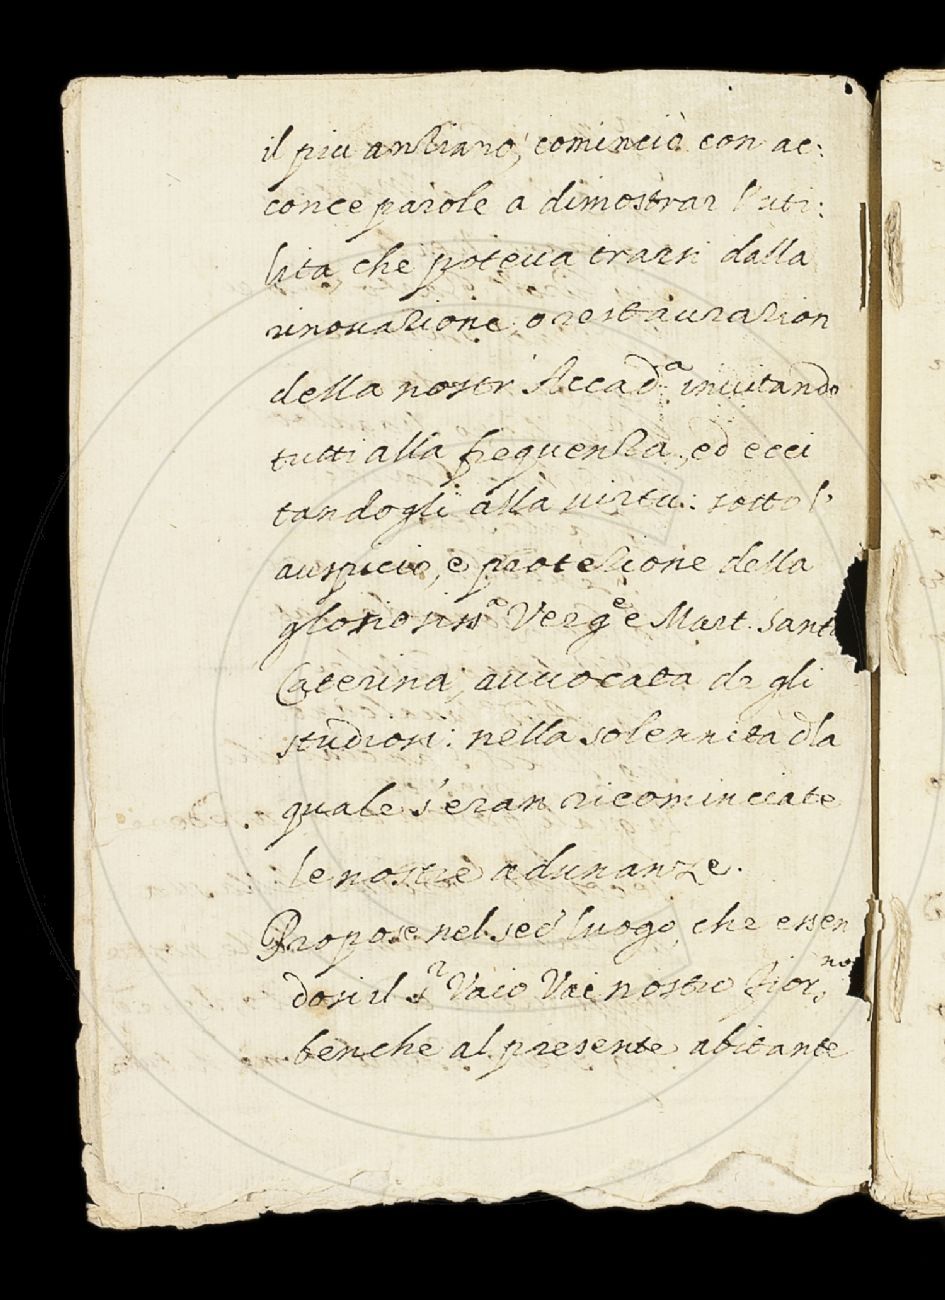 il piu anziano, cominciò con ac:
conce parole a dimostrar l'uti:
lita che poteua trarsi dalla
rinouazione, o restaurazion
della nostr' Accad.ª inuitando
tutti alla frequenza, ed ecci
tandogli alla uirtu: sotto l'
auspicio, e protezione della
gloriosiss.ª Verg.e e Mart. Santa
Caterina, auuocata degli
studiosi: nella solennità dla
quale s'eran ricominciate
le nostre adunanze.
Propose nel sec.º luogo, che essen
dosi il S.r Vaio Vai nostro Fior.no
benche al presente abitante